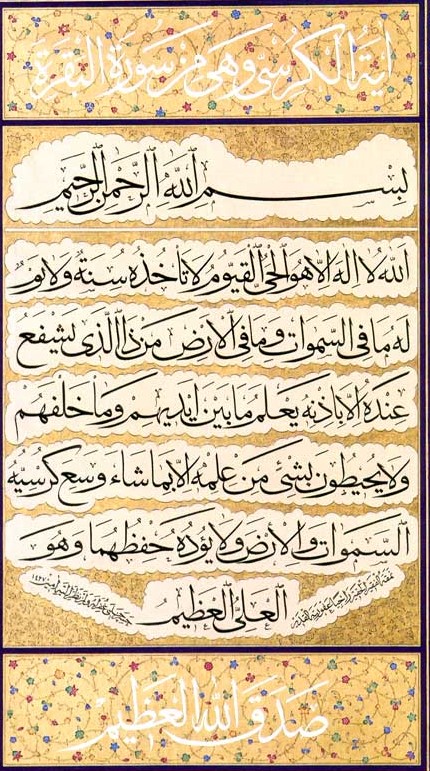 آية الكرسي وهي من سورة البقرة
بسم الله الرحمن الرحيم
الله لا اله الا هو الحي القيوم لا تأخذه سنة ولا نوم
له ما في السموات وما في الارض من ذا الذي يشفع
عنده الا باذنه يعلم ما بين ايديهم وما خلفهم
ولا يحيطون بشئ من علمه الا بما شاء وسع كرسيه
السموات والارض ولا يؤده حفظهما وهو
العلي العظيم
صدق الله العظيم